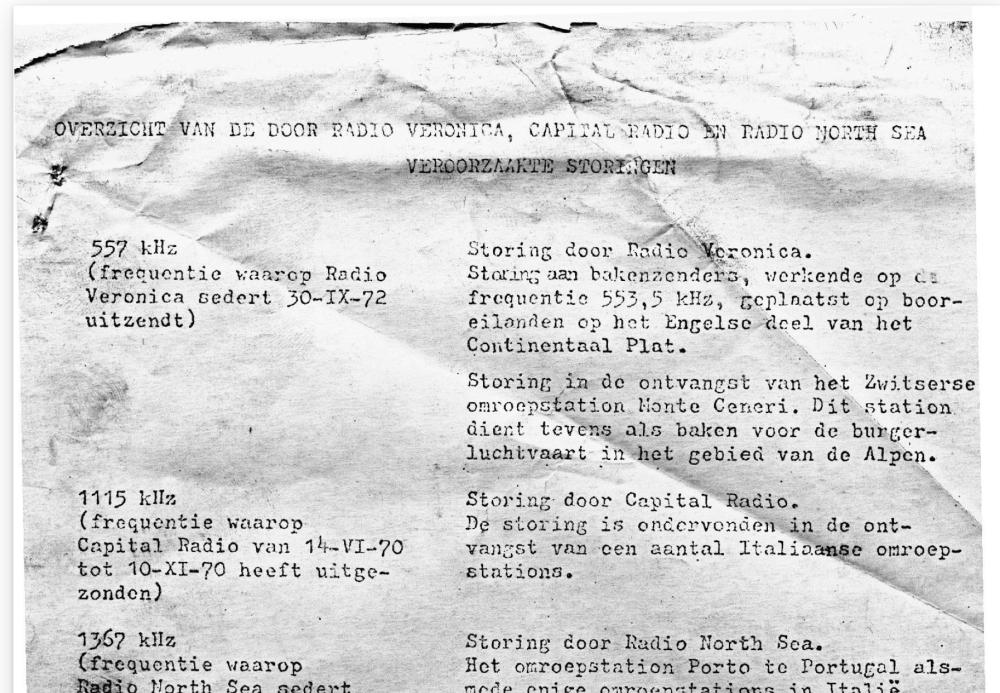 OVERZICHT VAN DE DOOR RADIO VERONICA, CAPITAL RADIO EN RADIO NORTH SEA
VEROORZAAKTE STORINGEN
557 kHz
(frequentie waarop Radio
Veronica sedert 30-IX-72
uitzendt)
Storing door Radio Veronica.
Storing aan bakenzenders, werkende op de
frequentie 553,5 kHz, geplaatst op boor-
eilanden op het Engelse deel van het
Continentaal Plat.
Storing in de ontvangst van het Zwitserse
omroepstation Monte Ceneri. Dit station
dient tevens als baken voor de burger-
luchtvaart in het gebied van de Alpen.
1115 kHz
(frequentie waarop
Capital Radio van 14-VI-70
tot 10-XI-70 heeft uitge-
zonden)
Storing door Capital Radio.
De storing is ondervonden in de ont-
vangst van een aantal Italiaanse omroep-
stations.
1367 kHz
(frequentie waarop
Radio North Sea sedert
Storing door Radio North Sea.
Het omroepstation Porto te Portugal als-
mede enige omroepstations in Italië